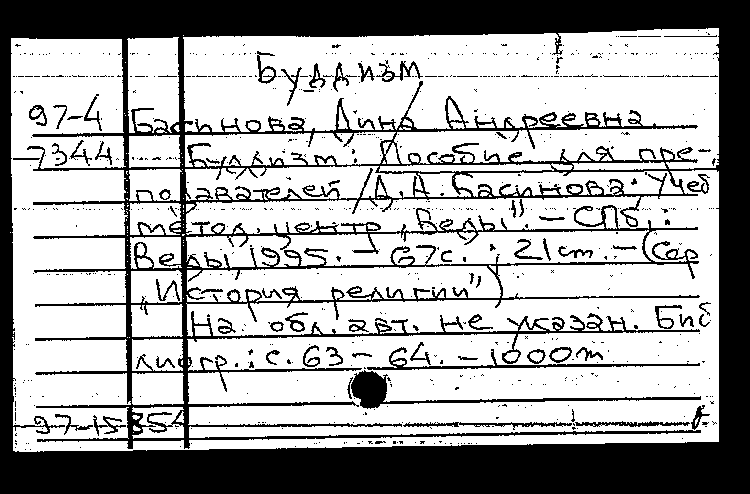 Буддизм
97-4 Басинова, Дина Андреевна.
7344 Буддизм: Пособие для пре-
подавателей / Д. А. Басинова; Учеб
метод. центр „Веды”. - СПб.:
Веды, 1995. - 67с.; 21cm. - (Сер
„История религии”)
На обл. авт. не указан. Биб
лиогр.: с. 63-64. - 1000m
97-15854